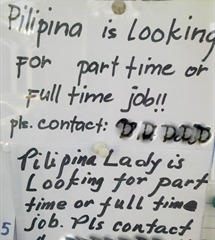 Pilipina is Looking
For part time or
Full time job!!
pls. contact:
Pilipina Lady is
Looking for part
time or full time
job. Pls contact
5